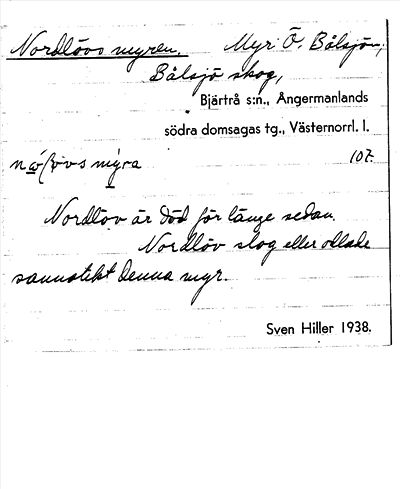 Nordlövs myren. Myr Ö. Bålsjön,
Bålsjö skog,
Bjärtrå s:n., Ångermanlands
södra domsagas tg., Västernorrl. l.
107.
Nordlöv är död för länge sedan.
Nordlöv slog eller odlade
sannolikt denna myr.
Sven Hiller 1938.